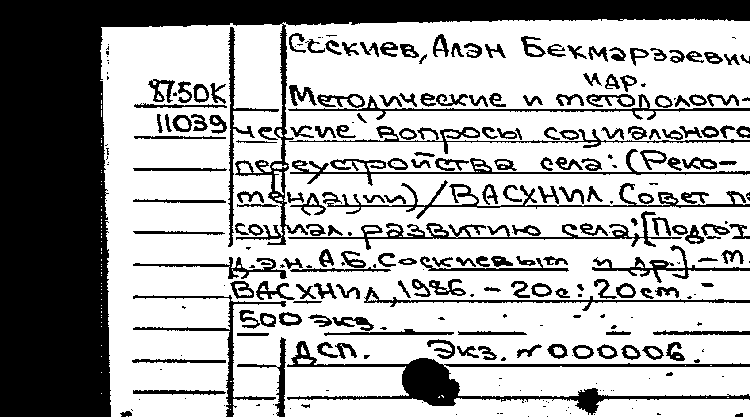 Соскиев, Алэн Бекмарзаевич
и др.
87-50К Методические и методологи-
11039 ческие вопросы социального
переустройства села: (Реко-
мендации) / ВАСХНИЛ. Совет по
социал. развитию села; [Подгот.
д.э.н. А.Б. Соскиевым и др.]. – М.
ВАСХНИЛ, 1986. – 20с; 20см. –
500 экз.
ДСП. Экз. №000006.